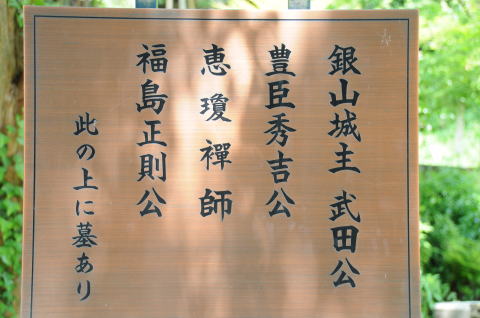 銀山城主 武田公
豊臣秀吉公
恵瓊禪師
福島正則公
此の上に墓あり